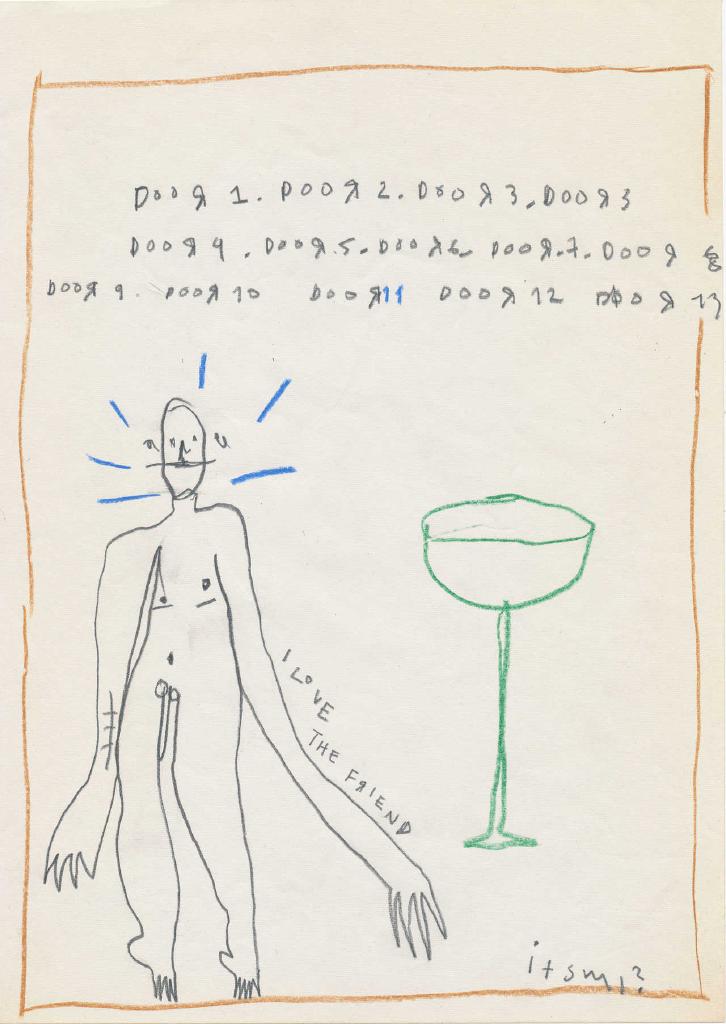 DOOЯ 1. DOOЯ 2. DOOЯ 3. DOOЯ 3
DOOЯ 4. DOOЯ.5. DOOЯ6. DOOЯ.7. DOOЯ 8
DOOЯ 9. DOOЯ 10 DOOЯ11 DOOЯ 12 DOOЯ 13
I LOVE THE FЯIEND
itsmı?